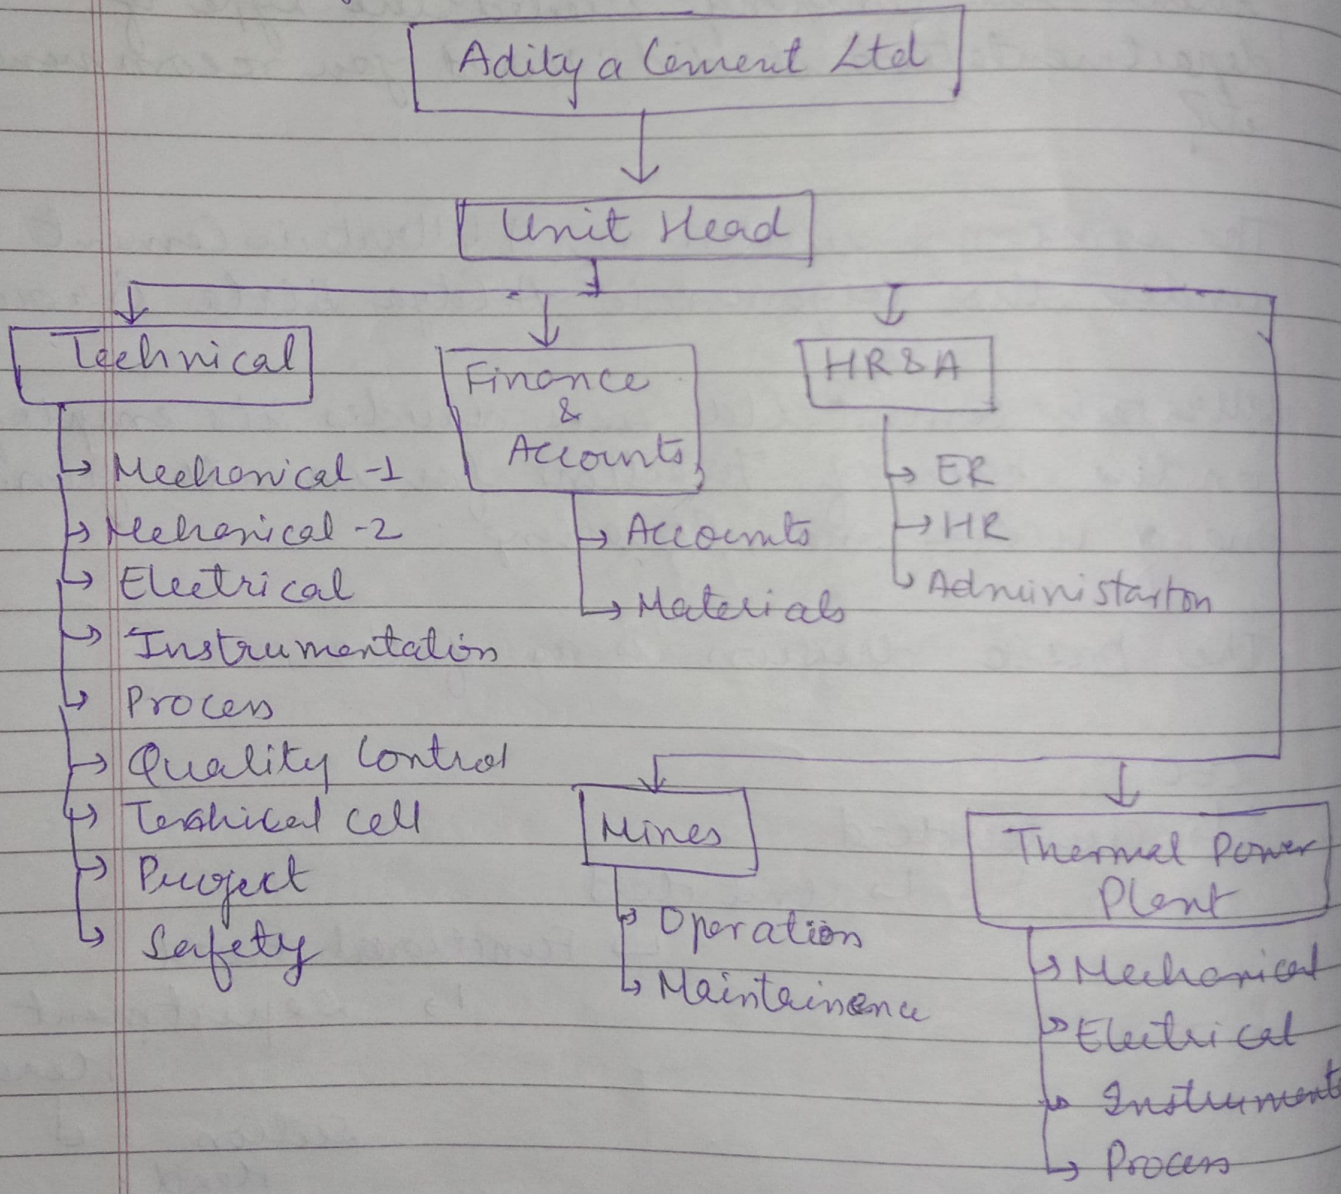 Aditya Cement Ltd
Unit Head
Technical
Mechanical -1
Mehanical -2
Electrical
Instrumentation
Process
Quality Control
Teshical cell
Project
Safety
Finance
&
Accounts
Accounts
Materials
HR&A
ER
HR
Administarton
Mines
Operation
Maintainence
Thermal Power
Plant
Mechanical
Electrical
Instrument
Process